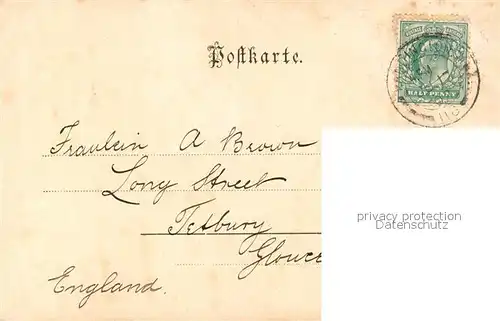 Postkarte.
HALF PENNY
Fraulein A Brown
Long Street
Tetbury
Glouce
England.
privacy protection
Datenschutz